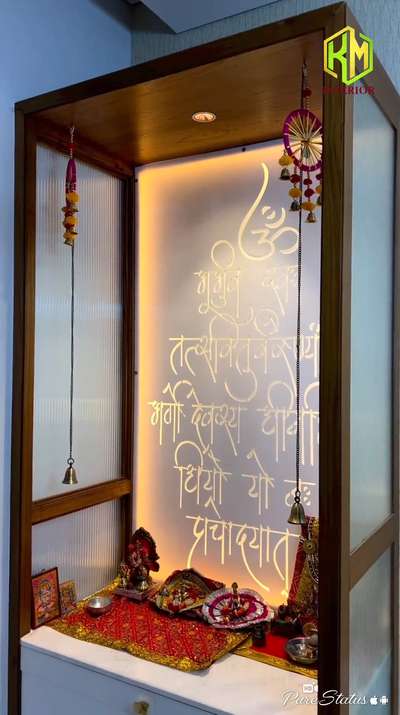 KM
INTERIOR
ॐ
भूर्भुवः स्वः
तत्सवितुर्वरेण्यं
भर्गो देवस्य धीमहि
धियो यो नः
प्रचोदयात्
HD
PureStatus